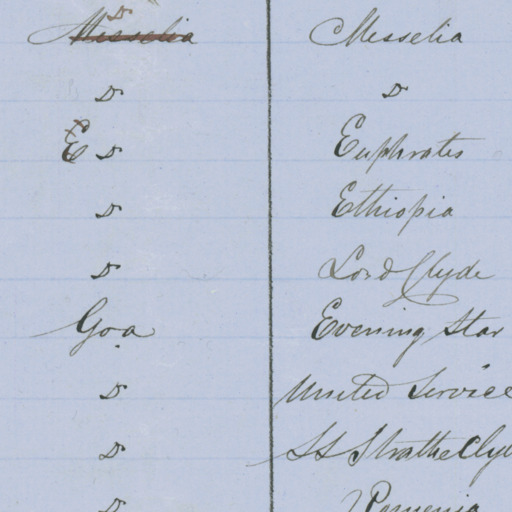 Do
Messelia Messelia
Do Do
E Do Euphrates
Do Ethiopia
Do Lord Clyde
Goa Evening Star
Do United Service
Do SS Strathe Clyd
Do Romenia